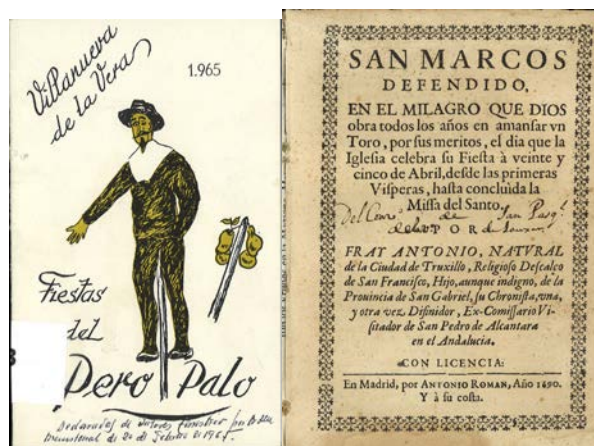 Villanueva
de la Vera
1.965
Fiestas
del
Pero Palo
Declaradas de
de 20 de
SAN MARCOS
DEFENDIDO,
EN EL MILAGRO QUE DIOS
obra todos los años en amanſar vn
Toro, por ſus meritos, el dia que la
Igleſia celebra ſu Fieſta à veinte y
cinco de Abril, deſde las primeras
Viſperas, haſta concluìda la
Miſſa del Santo.
de San
POR
FRAY ANTONIO, NATVRAL
de la Ciudad de Truxillo, Religioſo Deſcalço
de San Franciſco, Hijo, aunque indigno, de la
Prouincia de San Gabriel, ſu Chroniſta, vna,
y otra vez Difinidor, Ex-Comiſſario Vi-
ſitador de San Pedro de Alcantara
en el Andalucia.
CON LICENCIA:
En Madrid, por ANTONIO ROMAN, Año 1690.
Y à ſu coſta.